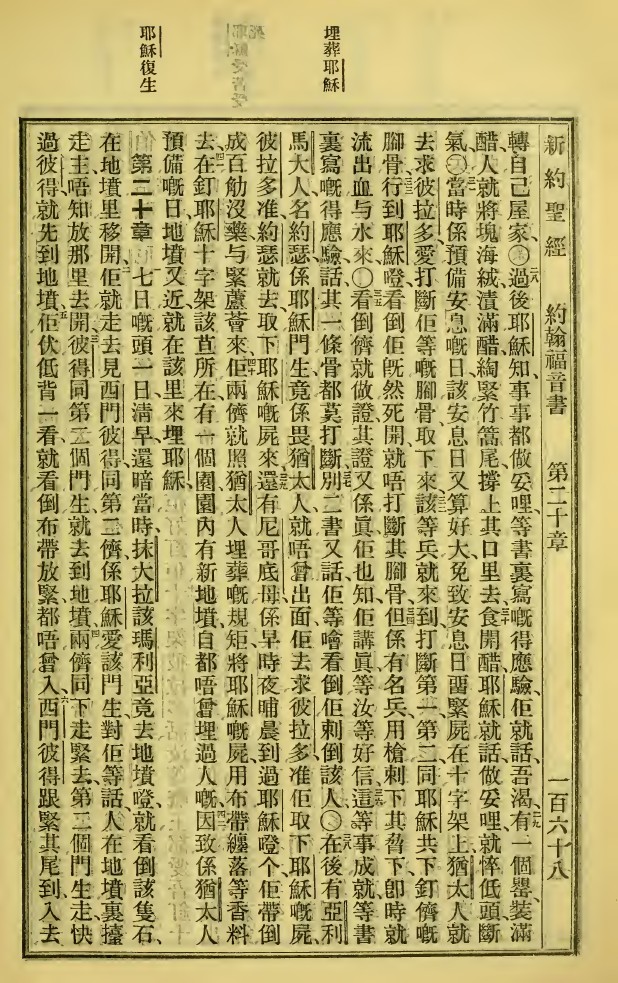 新約聖經 約翰福音書 第二十章 一百六十八
埋葬耶穌
耶穌復生
轉自己屋家○二八過後耶穌知事事都做妥哩等書裏寫嘅得應驗佢就話吾渴二九有一個罌裝滿
醋人就將塊海絨漬滿醋綯緊竹篙尾撐上其口里去三十食開醋耶穌就話做妥哩就悴低頭斷
氣○三一當時係預備安息嘅日該安息日又算好大免致安息日畱緊屍在十字架上猶太人就
去求彼拉多愛打斷佢等嘅腳骨取下來三二該等兵就來到打斷第一第二同耶穌共下釘儕嘅
腳骨三三行到耶穌嶝看倒佢旣然死開就唔打斷其腳骨三四但係有名兵用槍刺下其脅下卽時就
流出血与水來○三五看倒儕就做證其證又係眞佢也知佢講眞等汝等好信三六這等事成就等書
裏寫嘅得應驗話其一條骨都莫打斷三七別二書又話佢等噲看倒佢刺倒該人○三八在後有亞利
馬大人名約瑟係耶穌門生竟係畏猶太人就唔曾出面佢去求彼拉多准佢取下耶穌嘅屍
彼拉多准約瑟就去取下耶穌嘅屍來三九還有尼哥底母係早時夜晡晨到過耶穌嶝个佢帶倒
成百觔沒藥与緊蘆薈來四十佢兩儕就照猶太人埋葬嘅規矩將耶穌嘅屍用布帶纏落等香料
去四一在釘耶穌十字架該笪所在有一個園園內有新地墳自都唔曾埋過人嘅四二因致係猶太人
預備嘅日地墳又近就在該里來埋耶穌
第二十章 一七日嘅頭一日淸早還暗當時抹大拉該瑪利亞竟去地墳嶝就看倒該隻石
在地墳里移開二佢就走去見西門彼得同第二儕係耶穌愛該門生對佢等話人在地墳裏擡
走主唔知放那里去開三彼得同第二個門生就去到地墳四兩儕同下走緊去第二個門生走快
過彼得就先到地墳五佢伏低背一看就看倒布帶放緊都唔曾入六西門彼得跟緊其尾到入去